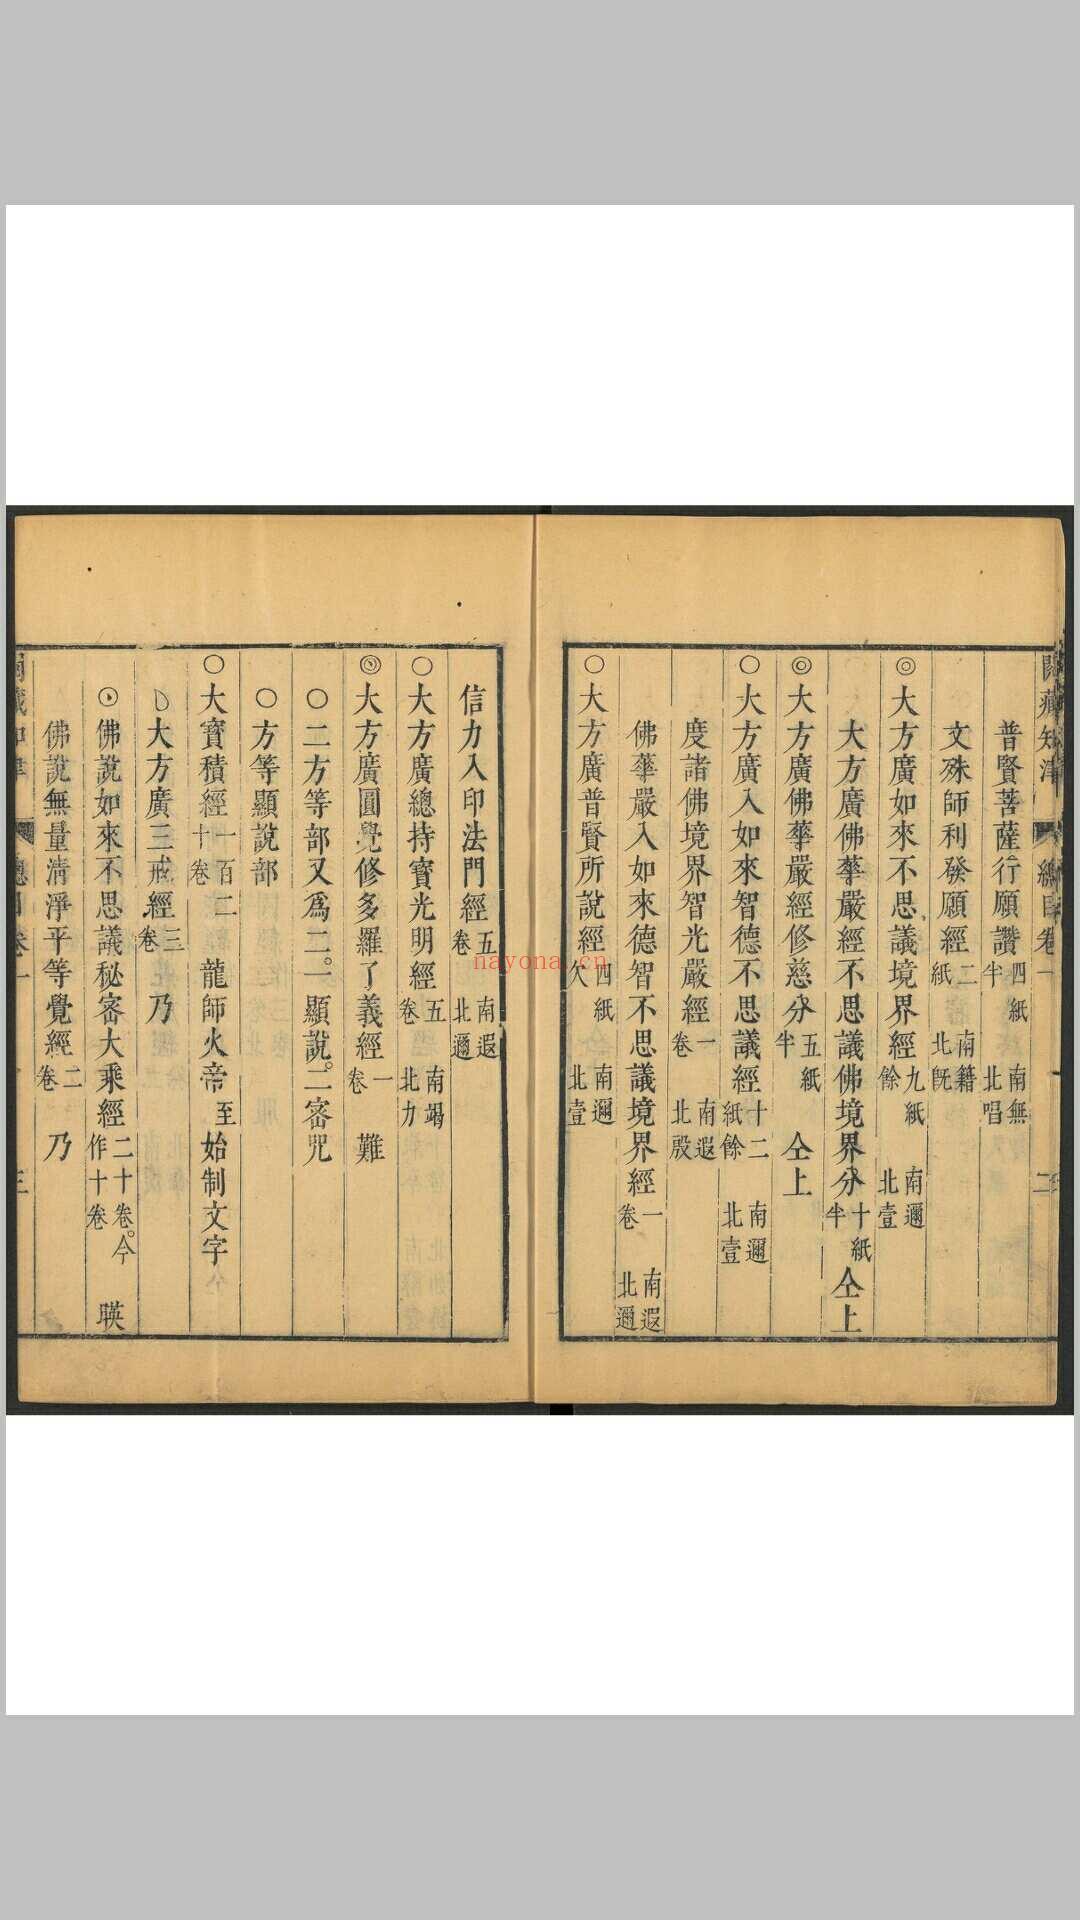 閱藏知津 總目卷一 二
普賢菩薩行願讚 四紙半 南無北唱
文殊師利發願經 二紙 南籍北旣
◎大方廣如來不思議境界經 九紙餘 南邇北壹
大方廣佛華嚴經不思議佛境界分 十紙半 仝上
◎大方廣佛華嚴經修慈分 五紙半 仝上
○大方廣入如來智德不思議經 十二紙餘 南邇北壹
度諸佛境界智光嚴經 一卷 南遐北殷
佛華嚴入如來德智不思議境界經 一卷 南遐北邇
○大方廣普賢所說經 四紙欠 南邇北壹
信力入印法門經 五卷 南遐北邇
○大方廣總持寶光明經 五卷 南竭北力
◎大方廣圓覺修多羅了義經 一卷 難
○二方等部又爲二。一顯說。二密咒
○方等顯說部
○大寶積經 一百二十卷 龍師火帝至始制文字
大方廣三戒經 三卷 乃
⊙佛說如來不思議秘密大乘經 二十卷。今作十卷 暎
佛說無量清淨平等覺經 二卷 乃
閱藏知津 總目卷一 三
nayona.cn